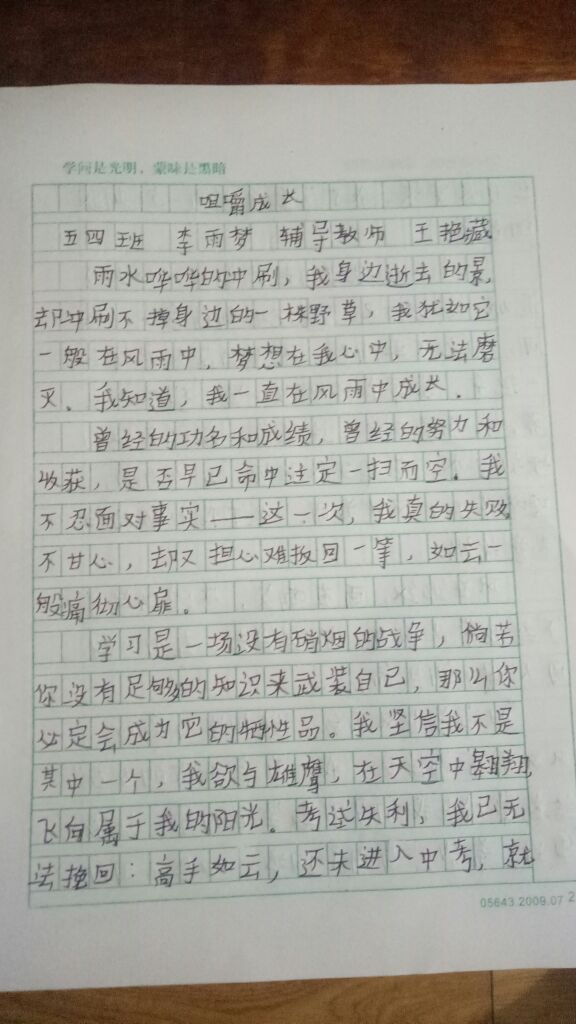 学问是光明，蒙昧是黑暗
咀嚼成长
五四班 李雨梦 辅导教师 王艳藏
雨水哗哗的冲刷，我身边逝去的景，
却冲刷不掉身边的一株野草，我犹如它
一般在风雨中，梦想在我心中，无法磨
灭。我知道，我一直在风雨中成长．
曾经的功名和成绩，曾经的努力和
收获，是否早已命中注定一扫而空。我
不忍面对事实——这一次，我真的失败，
不甘心，却又担心难扳回一筆，如云一
般痛彻心扉。
学习是一场没有硝烟的战争，倘若
你没有足够的知识来武装自己，那么你
必定会成为它的牺牲品。我坚信我不是
其中一个，我欲与雄鹰，在天空中翱翔，
飞向属于我的阳光。考试失利，我已无
法挽回：高手如云，还未进入中考，就
05643.2009.07 2